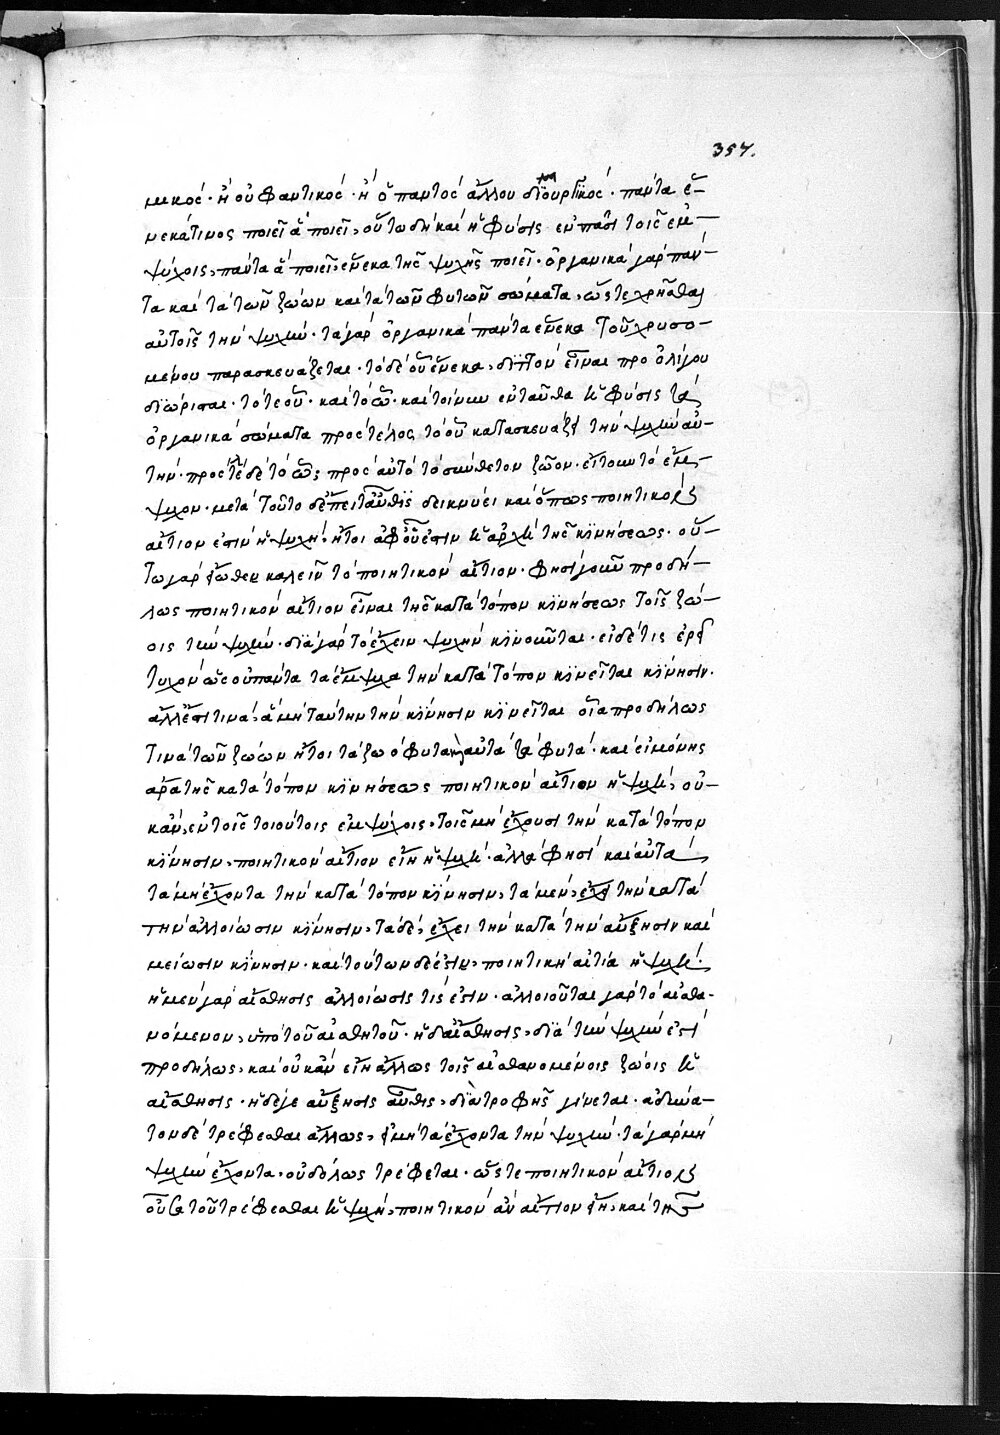 357.
μικὸς· ἢ οὐφαντικὸς· ἢ ὁ παντὸς ἄλλου δημιουργικὸς· πάντα ἕ-
νεκά τινος ποιεῖ ἃ ποιεῖ, οὕτω δὴ καὶ ἡ φύσις ἐν πᾶσι τοῖς ἐμ-
ψύχοις, πάντα ἃ ποιεῖ, ἕνεκα τῆς ψυχῆς ποιεῖ· ὀργανικὰ γὰρ πάν-
τα καὶ τὰ τῶν ζώων καὶ τὰ τῶν φυτῶν σώματα, ὥς τε χρῆσθαι
αὐτοῖς τὴν ψυχήν· τὰ γὰρ ὀργανικὰ πάντα ἕνεκα τοῦ χρησο-
μένου παρασκευάζεται· τὸ δὲ οὗ ἕνεκα, διττὸν εἶναι πρὸ ὀλίγου
διώρισται· τό τε οὗ· καὶ τὸ ᾧ· καὶ τοίνυν ἐνταῦθα ἡ φύσις τὰ
ὀργανικὰ σώματα πρὸς τέλος τὸ οὗ κατασκευάζει τὴν ψυχὴν αὐ-
τήν· πρὸς τέλος δὲ τὸ ᾧ, πρὸς αὐτὸ τὸ σύνθετον ζῶον· εἴτουν τὸ ἔμ-
ψυχον· μετὰ τοῦτο δ' ἔπειτ' αὖθις δεικνύει καὶ ὅπως ποιητικὸν
αἴτιόν ἐστιν ἡ ψυχή· ἤτοι ἀφ' οὗ ἐστιν ἡ ἀρχὴ τῆς κινήσεως· οὕ-
τω γὰρ εἴωθεν καλεῖν τὸ ποιητικὸν αἴτιον· φησὶ γοῦν προδή-
λως ποιητικὸν αἴτιον εἶναι τῆς κατὰ τόπον κινήσεως τοῖς ζώ-
οις τὴν ψυχήν· διὰ γὰρ τὸ ἔχειν ψυχὴν κινοῦνται· εἰ δέ τις ἐρεῖ
τυχὸν ὡς οὐ πάντα τὰ ἔμψυχα τὴν κατὰ τόπον κινεῖται κίνησιν·
ἀλλ' ἔστι τινὰ, ἃ μὴ ταύτην τὴν κίνησιν κινεῖται οἷα προδήλως
τινὰ τῶν ζώων ἤτοι τὰ ζωόφυτα καὶ αὐτὰ τὰ φυτά· καὶ εἰ μόνης
ἄρα τῆς κατὰ τόπον κινήσεως ποιητικὸν αἴτιον ἡ ψυχή, οὐ-
κ ἂν, ἐν τοῖς τοιούτοις ἐμψύχοις, τοῖς μὴ ἔχουσι τὴν κατὰ τόπον
κίνησιν, ποιητικὸν αἴτιον εἴη ἡ ψυχή· ἀλλὰ φησὶ καὶ αὐτὰ
τὰ μὴ ἔχοντα τὴν κατὰ τόπον κίνησιν, τὰ μὲν, ἔχει τὴν κατὰ
τὴν ἀλλοίωσιν κίνησιν, τὰ δὲ, ἔχει τὴν κατὰ τὴν αὔξησιν καὶ
μείωσιν κίνησιν· καὶ τούτων δὲ ἐστιν, ποιητικὴ αἰτία ἡ ψυχή·
ἡ μὲν γὰρ αἴσθησις ἀλλοίωσίς τίς ἐστιν· ἀλλοιοῦται γὰρ τὸ αἰσθα-
νόμενον, ὑπὸ τοῦ αἰσθητοῦ· ἡ δ' αἴσθησις, διὰ τὴν ψυχὴν ἐστὶ
προδήλως, καὶ οὐκ ἂν εἴη ἄλλως τοῖς αἰσθανομένοις ζώοις ἡ
αἴσθησις· ἡ δέ γε αὔξησις αὖθις, διὰ τροφῆς γίνεται· ἀδύνα-
τον δὲ τρέφεσθαι ἄλλως, εἰ μὴ τὰ ἔχοντα τὴν ψυχήν· τὰ γὰρ μὴ
ψυχὴν ἔχοντα, οὐδ' ὅλως τρέφεται· ὥς τε ποιητικὸν αἴτιον
οὖσα τοῦ τρέφεσθαι ἡ ψυχή, ποιητικὸν ἂν αἴτιον εἴη, καὶ τῆς